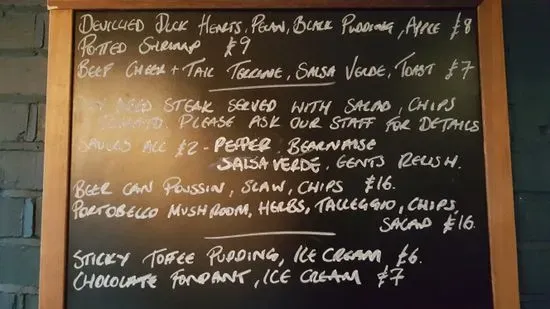 DEVILLED DUCK HEARTS, PECAN, BLACK PUDDING, APPLE £8
POTTED SHRIMP £9
BEEF CHEEK + TAIL TERRINE, SALSA VERDE, TOAST £7
AGED STEAK SERVED WITH SALAD, CHIPS
PLEASE ASK OUR STAFF FOR DETAILS
SAUCES ALL £2 - PEPPER. BEARNAISE
SALSA VERDE, GENTS RELISH.
BEER CAN POUSSIN, SLAW, CHIPS £16.
PORTOBELLO MUSHROOM, HERBS, TALLEGGIO, CHIPS,
SALAD £16.
STICKY TOFFEE PUDDING, ICE CREAM £6.
CHOCOLATE FONDANT, ICE CREAM £7